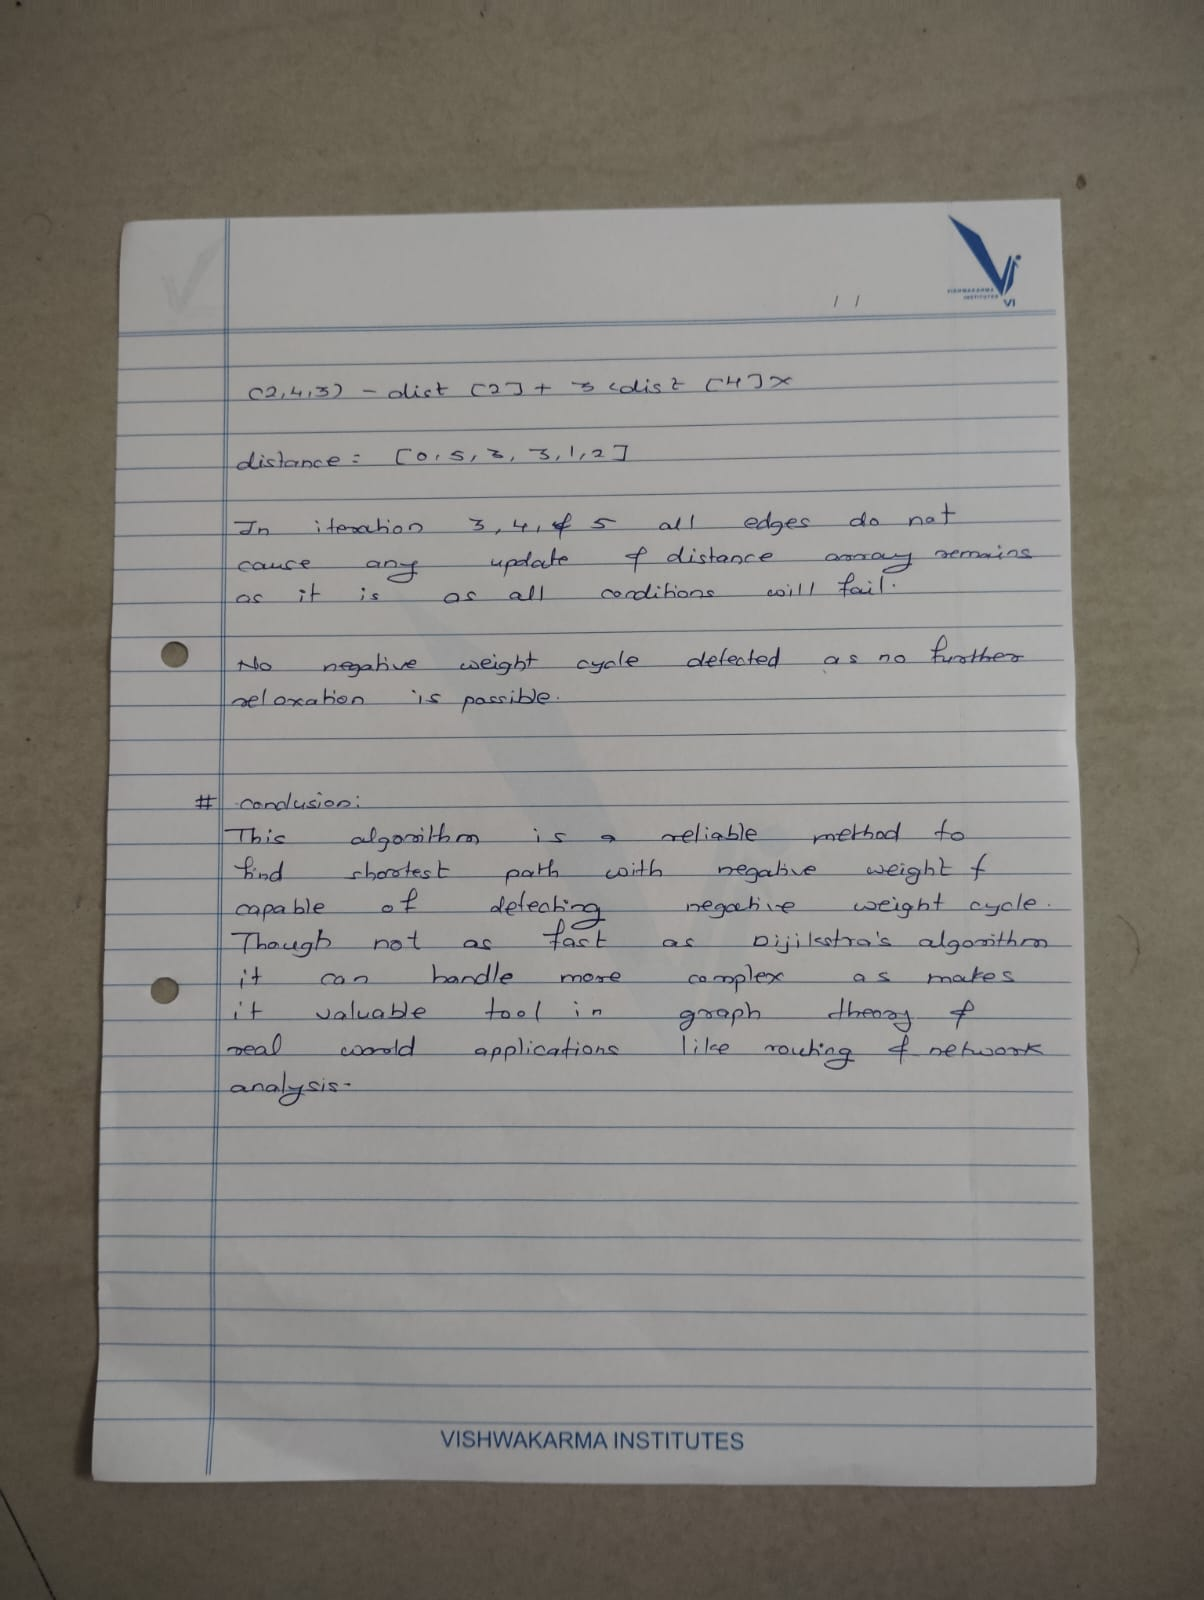 VISHWAKARMA
INSTITUTES
VI
/ /
(2,4,3) - dist [2] + 3 < dist [4] x
distance = [0, 5, 3, 3, 1, 2]
In iteration 3, 4, & 5 all edges do not
cause any update & distance array remains
as it is as all conditions will fail.
No negative weight cycle detected as no further
relaxation is possible.
# conclusion:
This algorithm is a reliable method to
find shortest path with negative weight &
capable of detecting negative weight cycle.
Though not as fast as Dijikstra's algorithm
it can handle more complex as makes
it valuable tool in graph theory &
real world applications like routing & network
analysis.
VISHWAKARMA INSTITUTES